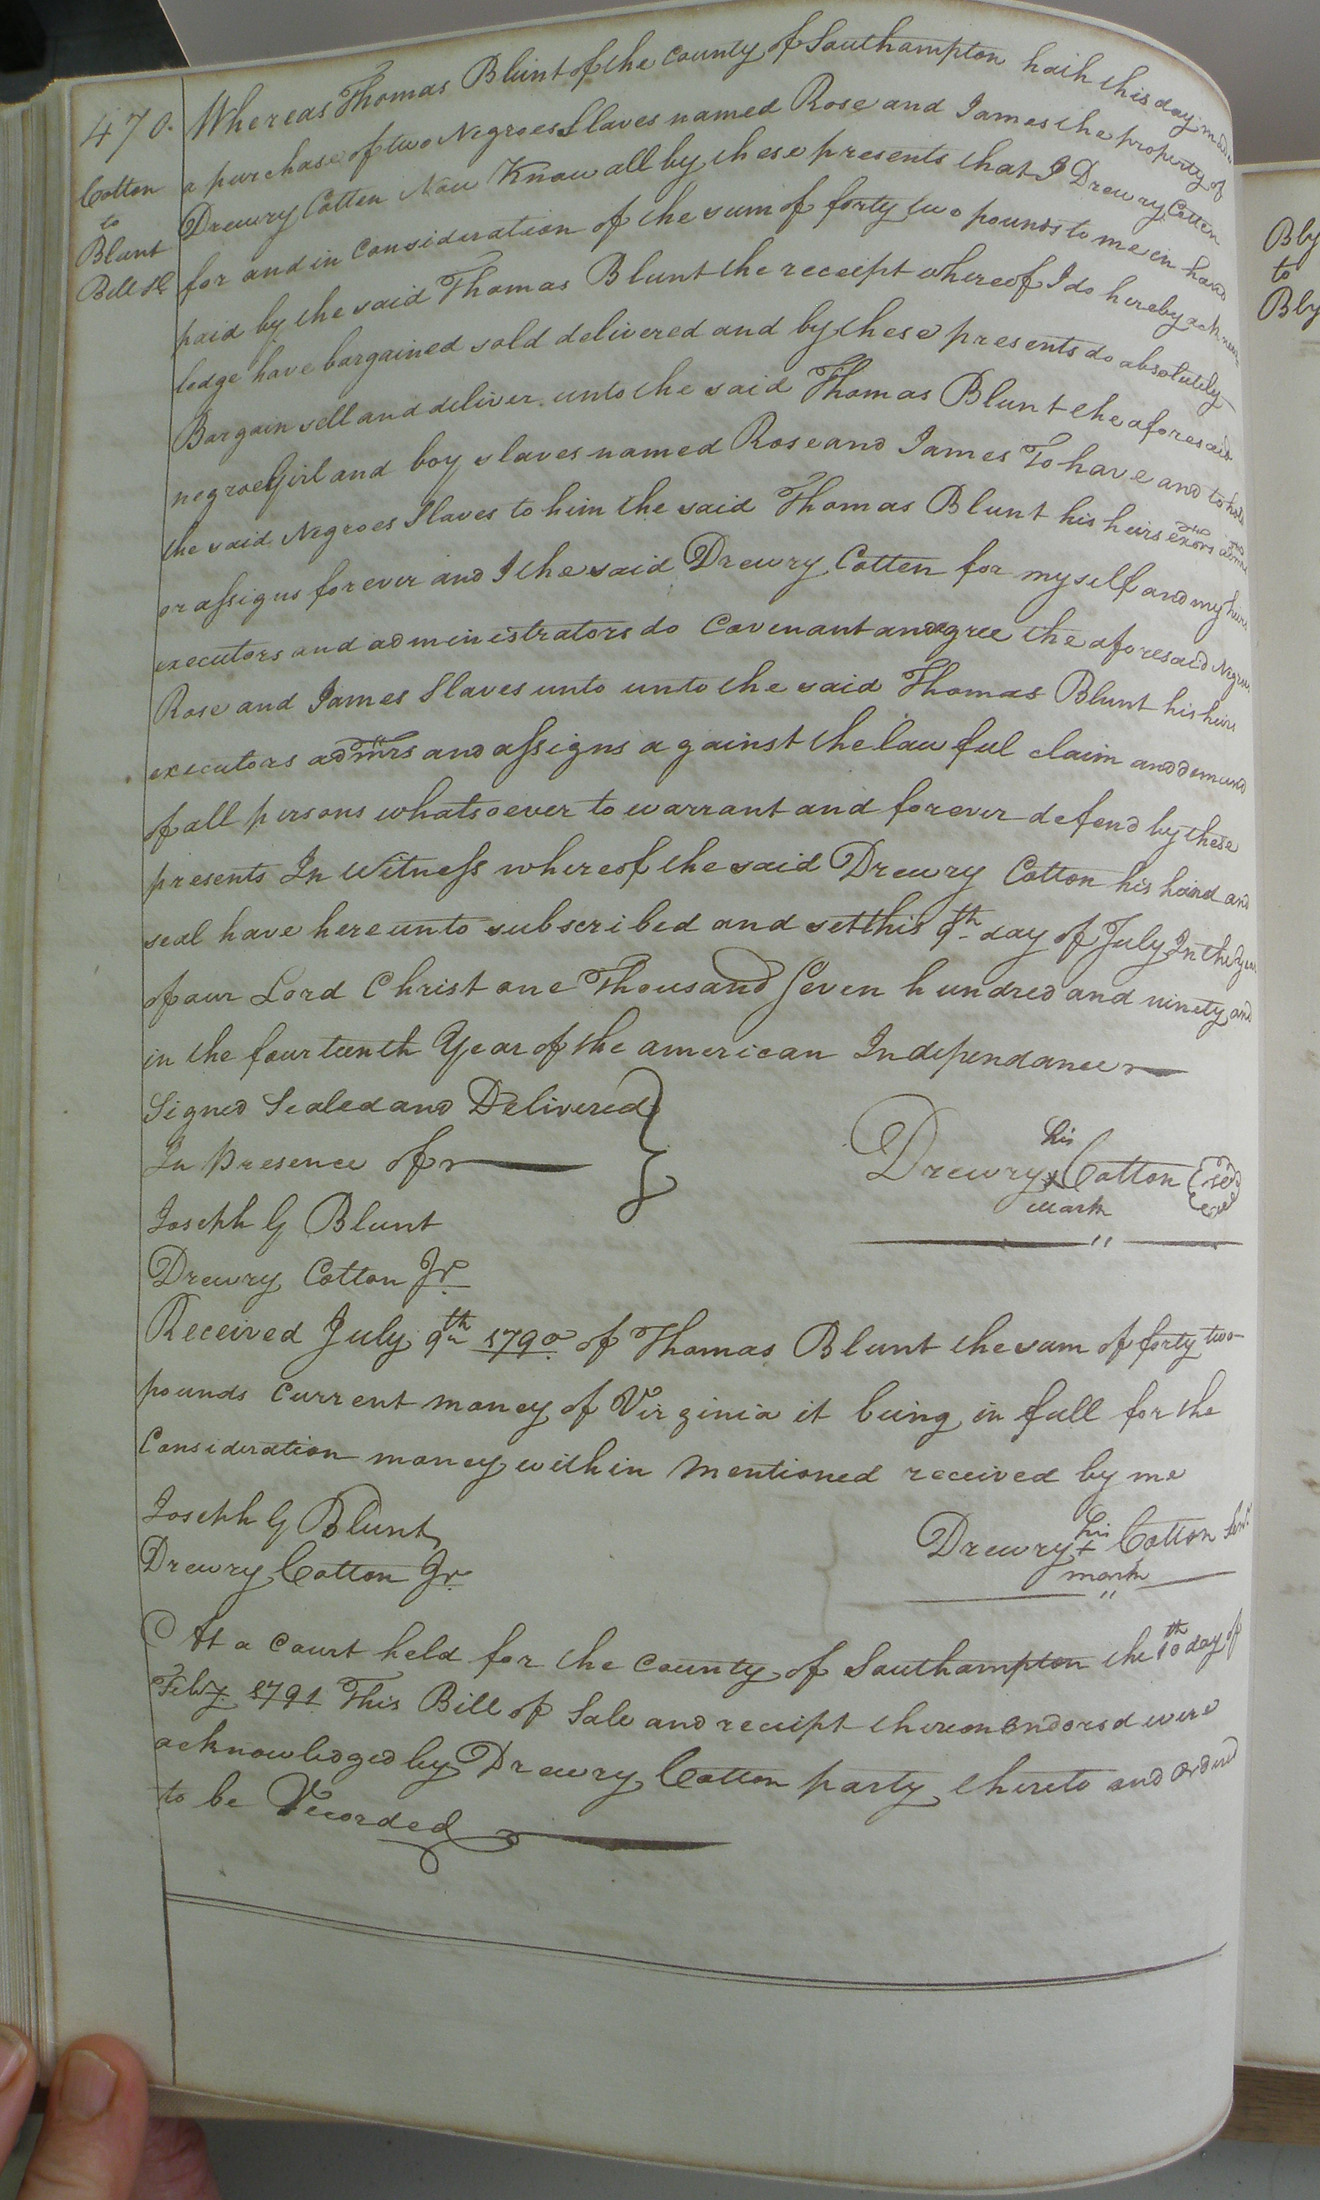 470.
Cotton
to
Blunt
Bill Sl
Whereas Thomas Blunt of the County of Southampton hath this day made
a purchase of two Negroes Slaves named Rose and James the property of
Drewry Cotten Now Know all by these presents that I Drewry Cotten
for and in Consideration of the sum of forty two pounds to me in hand
paid by the said Thomas Blunt the receipt whereof I do hereby acknow
ledge have bargained sold delivered and by these presents do absolutely
Bargain sell and deliver unto the said Thomas Blunt the aforesaid
negroe Girl and boy slaves named Rose and James To have and to hold
the said Negroes Slaves to him the said Thomas Blunt his heirs exors
or assigns forever and I the said Drewry Cotten for myself and my heirs
executors and administrators do Covenant and agree the aforesaid Negroes
Rose and James Slaves unto unto the said Thomas Blunt his heirs
executors admrs and assigns against the lawful claim and demand
of all persons whatsoever to warrant and forever defend by these
presents In Witness whereof the said Drewry Cotton his hand and
seal have hereunto subscribed and set this 9th day of July In the year
of our Lord Christ one Thousand Seven hundred and ninety and
in the fourteenth Year of the american Independance
Signed Sealed and Delivered
In Presence of
Joseph G Blunt
Drewry Cotton Jr.
his
Drewry x Cotton seal
mark
Received July 9th 1790 of Thomas Blunt the sum of forty two
pounds Current money of Virginia it being in full for the
Consideration money within Mentioned received by me
Joseph G Blunt
Drewry Cotton Jr.
his
Drewry + Cotton Senr.
mark
At a Court held for the County of Southampton the 10th day of
Feby 1791 This Bill of Sale and receipt thereon Endorsd were
acknowledged by Drewry Cotton party thereto and ordered
to be Recorded
Bly
to
Bly